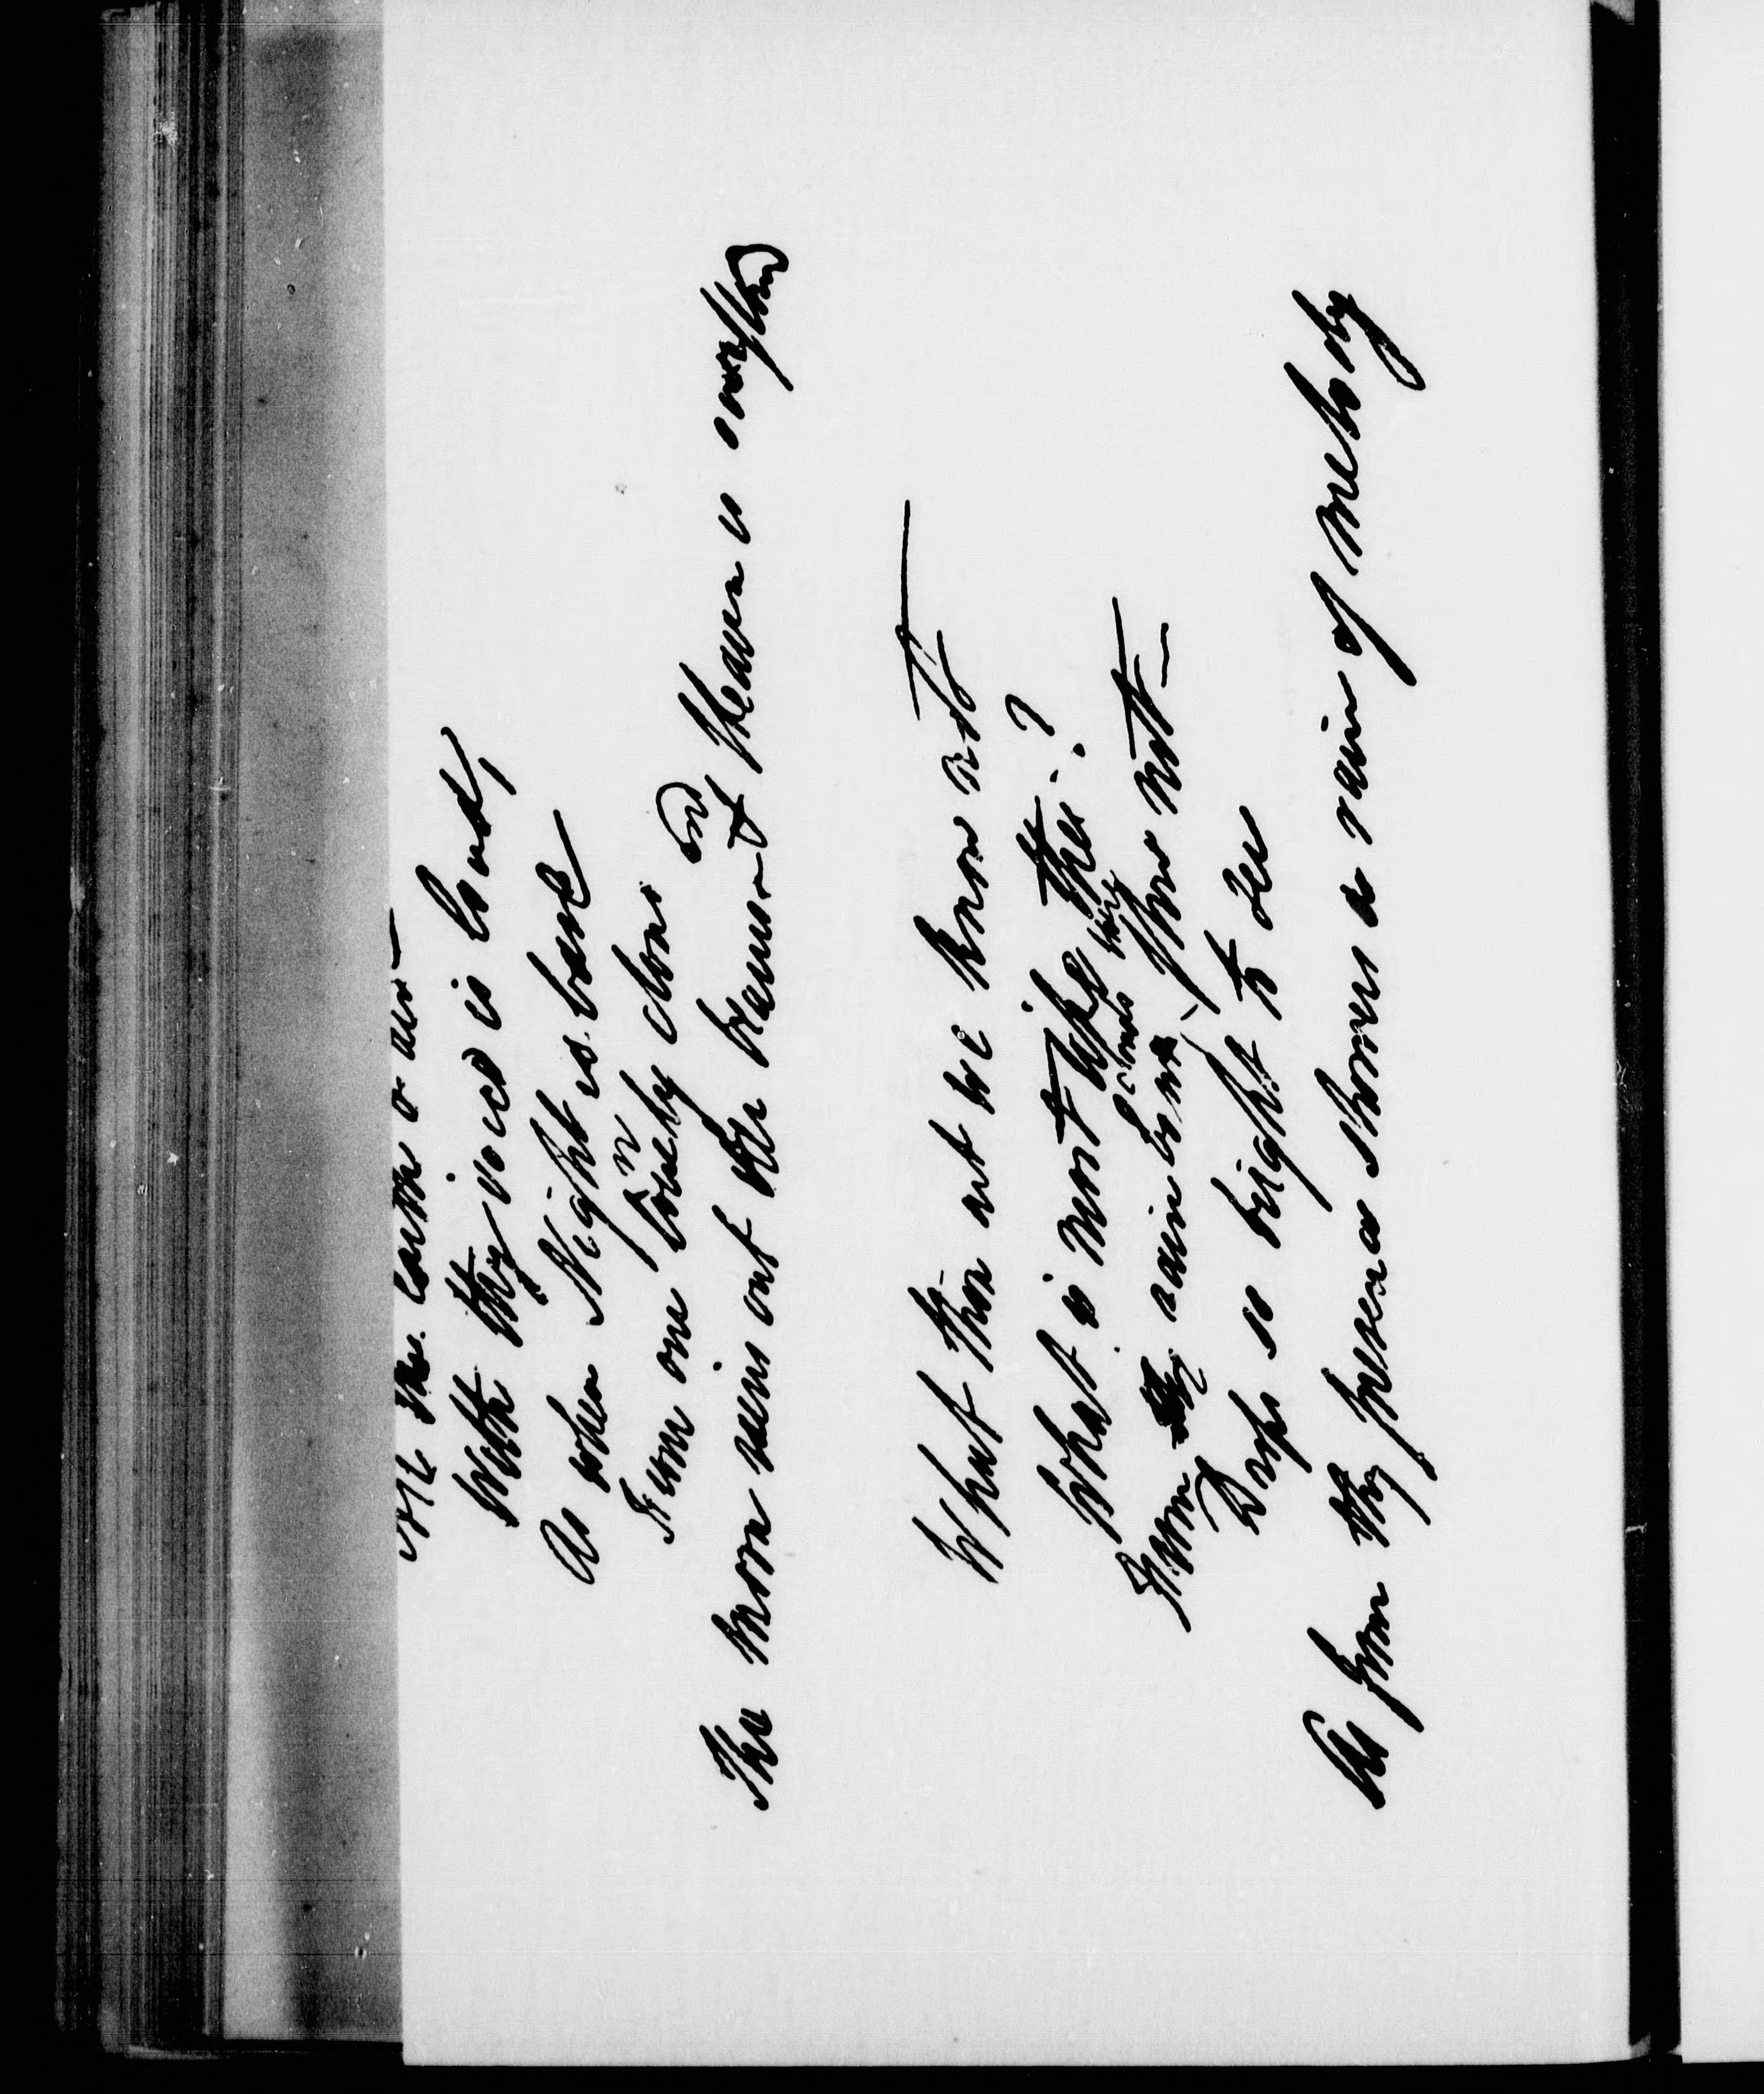 All the earth & air
With thy voice is loud,
As when Night is bare
From one lonely cloud
The moon rains out her beams – & Heaven is overflowed
What thou art we know not—
What is most like thee?
From rainbow clouds there flow not
Drops so bright to see
As from thy presence showers a rain of melody